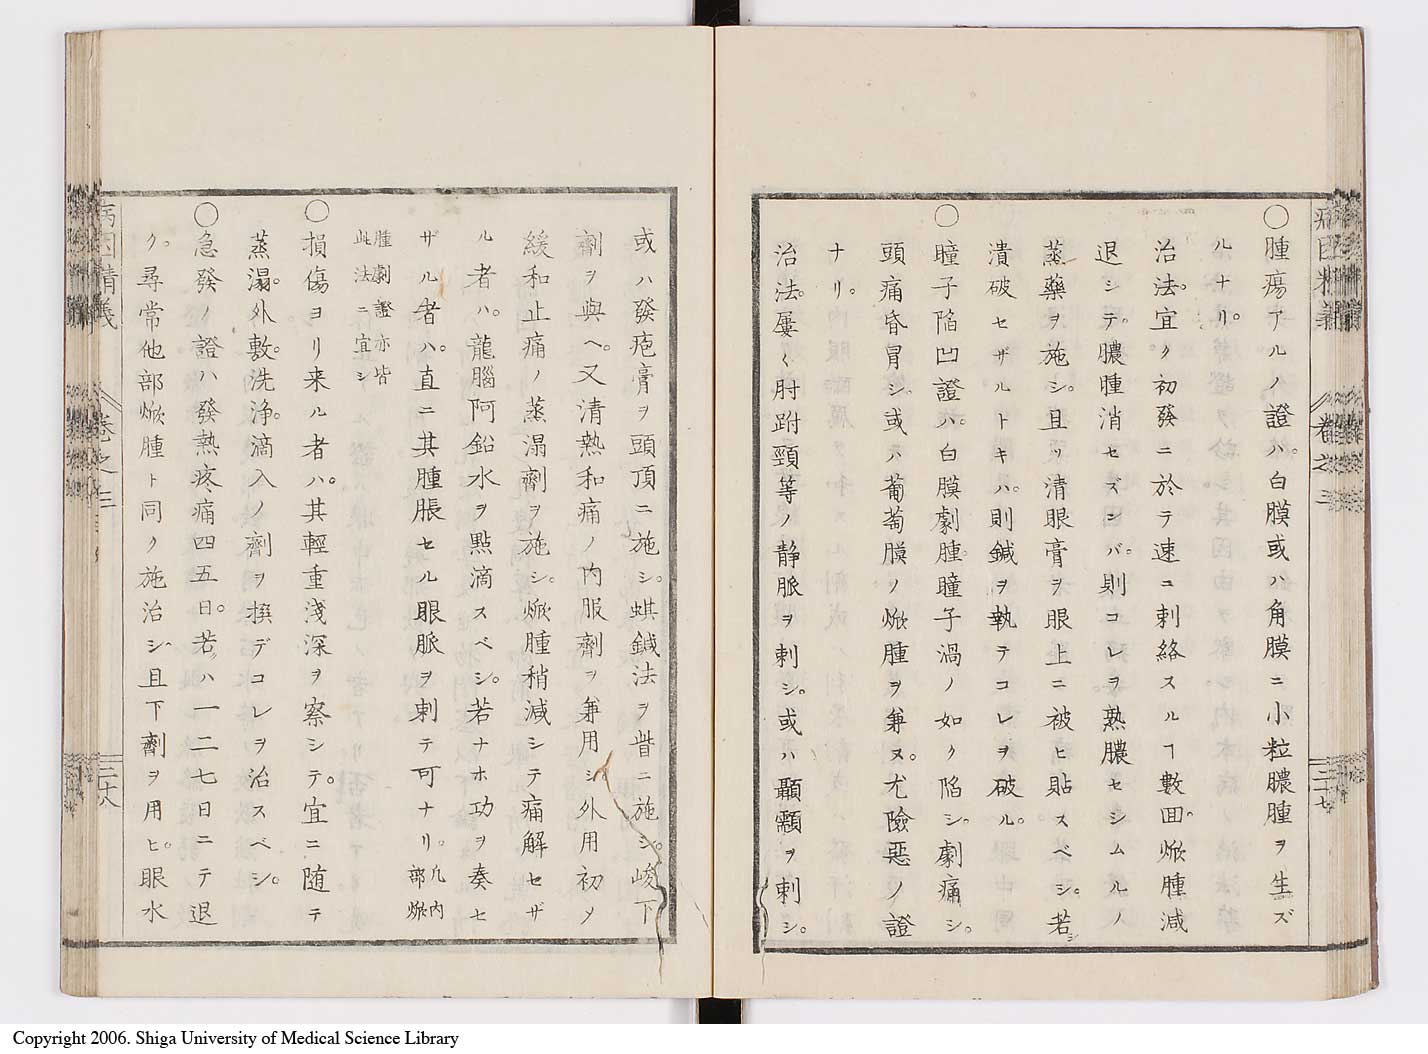 病因精義 卷之三 二十七
〇腫瘍アルノ證ハ。白膜或ハ角膜ニ小粒膿腫ヲ生ズ
ルナリ。
治法。宜ク初發ニ於テ速ニ刺絡スルヿ數囬。焮腫減
退シテ。膿腫消セズンバ。則コレヲ熟膿セシムルノ
蒸藥ヲ施シ。且ツ清眼膏ヲ眼上ニ被ヒ貼スベシ。若シ
潰破セザルトキハ。則鍼ヲ執テコレヲ破ル。
〇瞳子陷凹證ハ。白膜劇腫。瞳子渦ノ如ク陷シ。劇痛シ。
頭痛昏冒シ。或ハ葡萄膜ノ焮腫ヲ兼ヌ。尤險惡ノ證
ナリ。
治法。屢〱肘跗頸等ノ静脈ヲ刺シ。或ハ顳顬ヲ刺シ。
或ハ發疱膏ヲ頭頂ニ施シ。蜞鍼法ヲ眥ニ施シ。峻下
劑ヲ與ヘ。又清熱和痛ノ内服劑ヲ兼用シ。外用初メ
緩和止痛ノ蒸溻劑ヲ施シ。焮腫稍減シテ痛解セザ
ル者ハ。龍腦阿鉛水ヲ點滴スベシ。若ナホ功ヲ奏セ
ザル者ハ。直ニ其腫脹セル眼脈ヲ刺テ可ナリ。凡内
部焮
腫劇證亦皆
此法ニ宜シ
〇損傷ヨリ来ル者ハ。其輕重淺深ヲ察シテ。宜ニ随テ
蒸溻。外敷。洗浄。滴入ノ劑ヲ撰デコレヲ治スベシ。
〇急發ノ證ハ發熱疼痛四五日。若ハ一二七日ニテ退
ク。尋常他部焮腫ト同ク施治シ。且下劑ヲ用ヒ。眼水
病因精義 卷之三 二十八
Copyright 2006. Shiga University of Medical Science Library